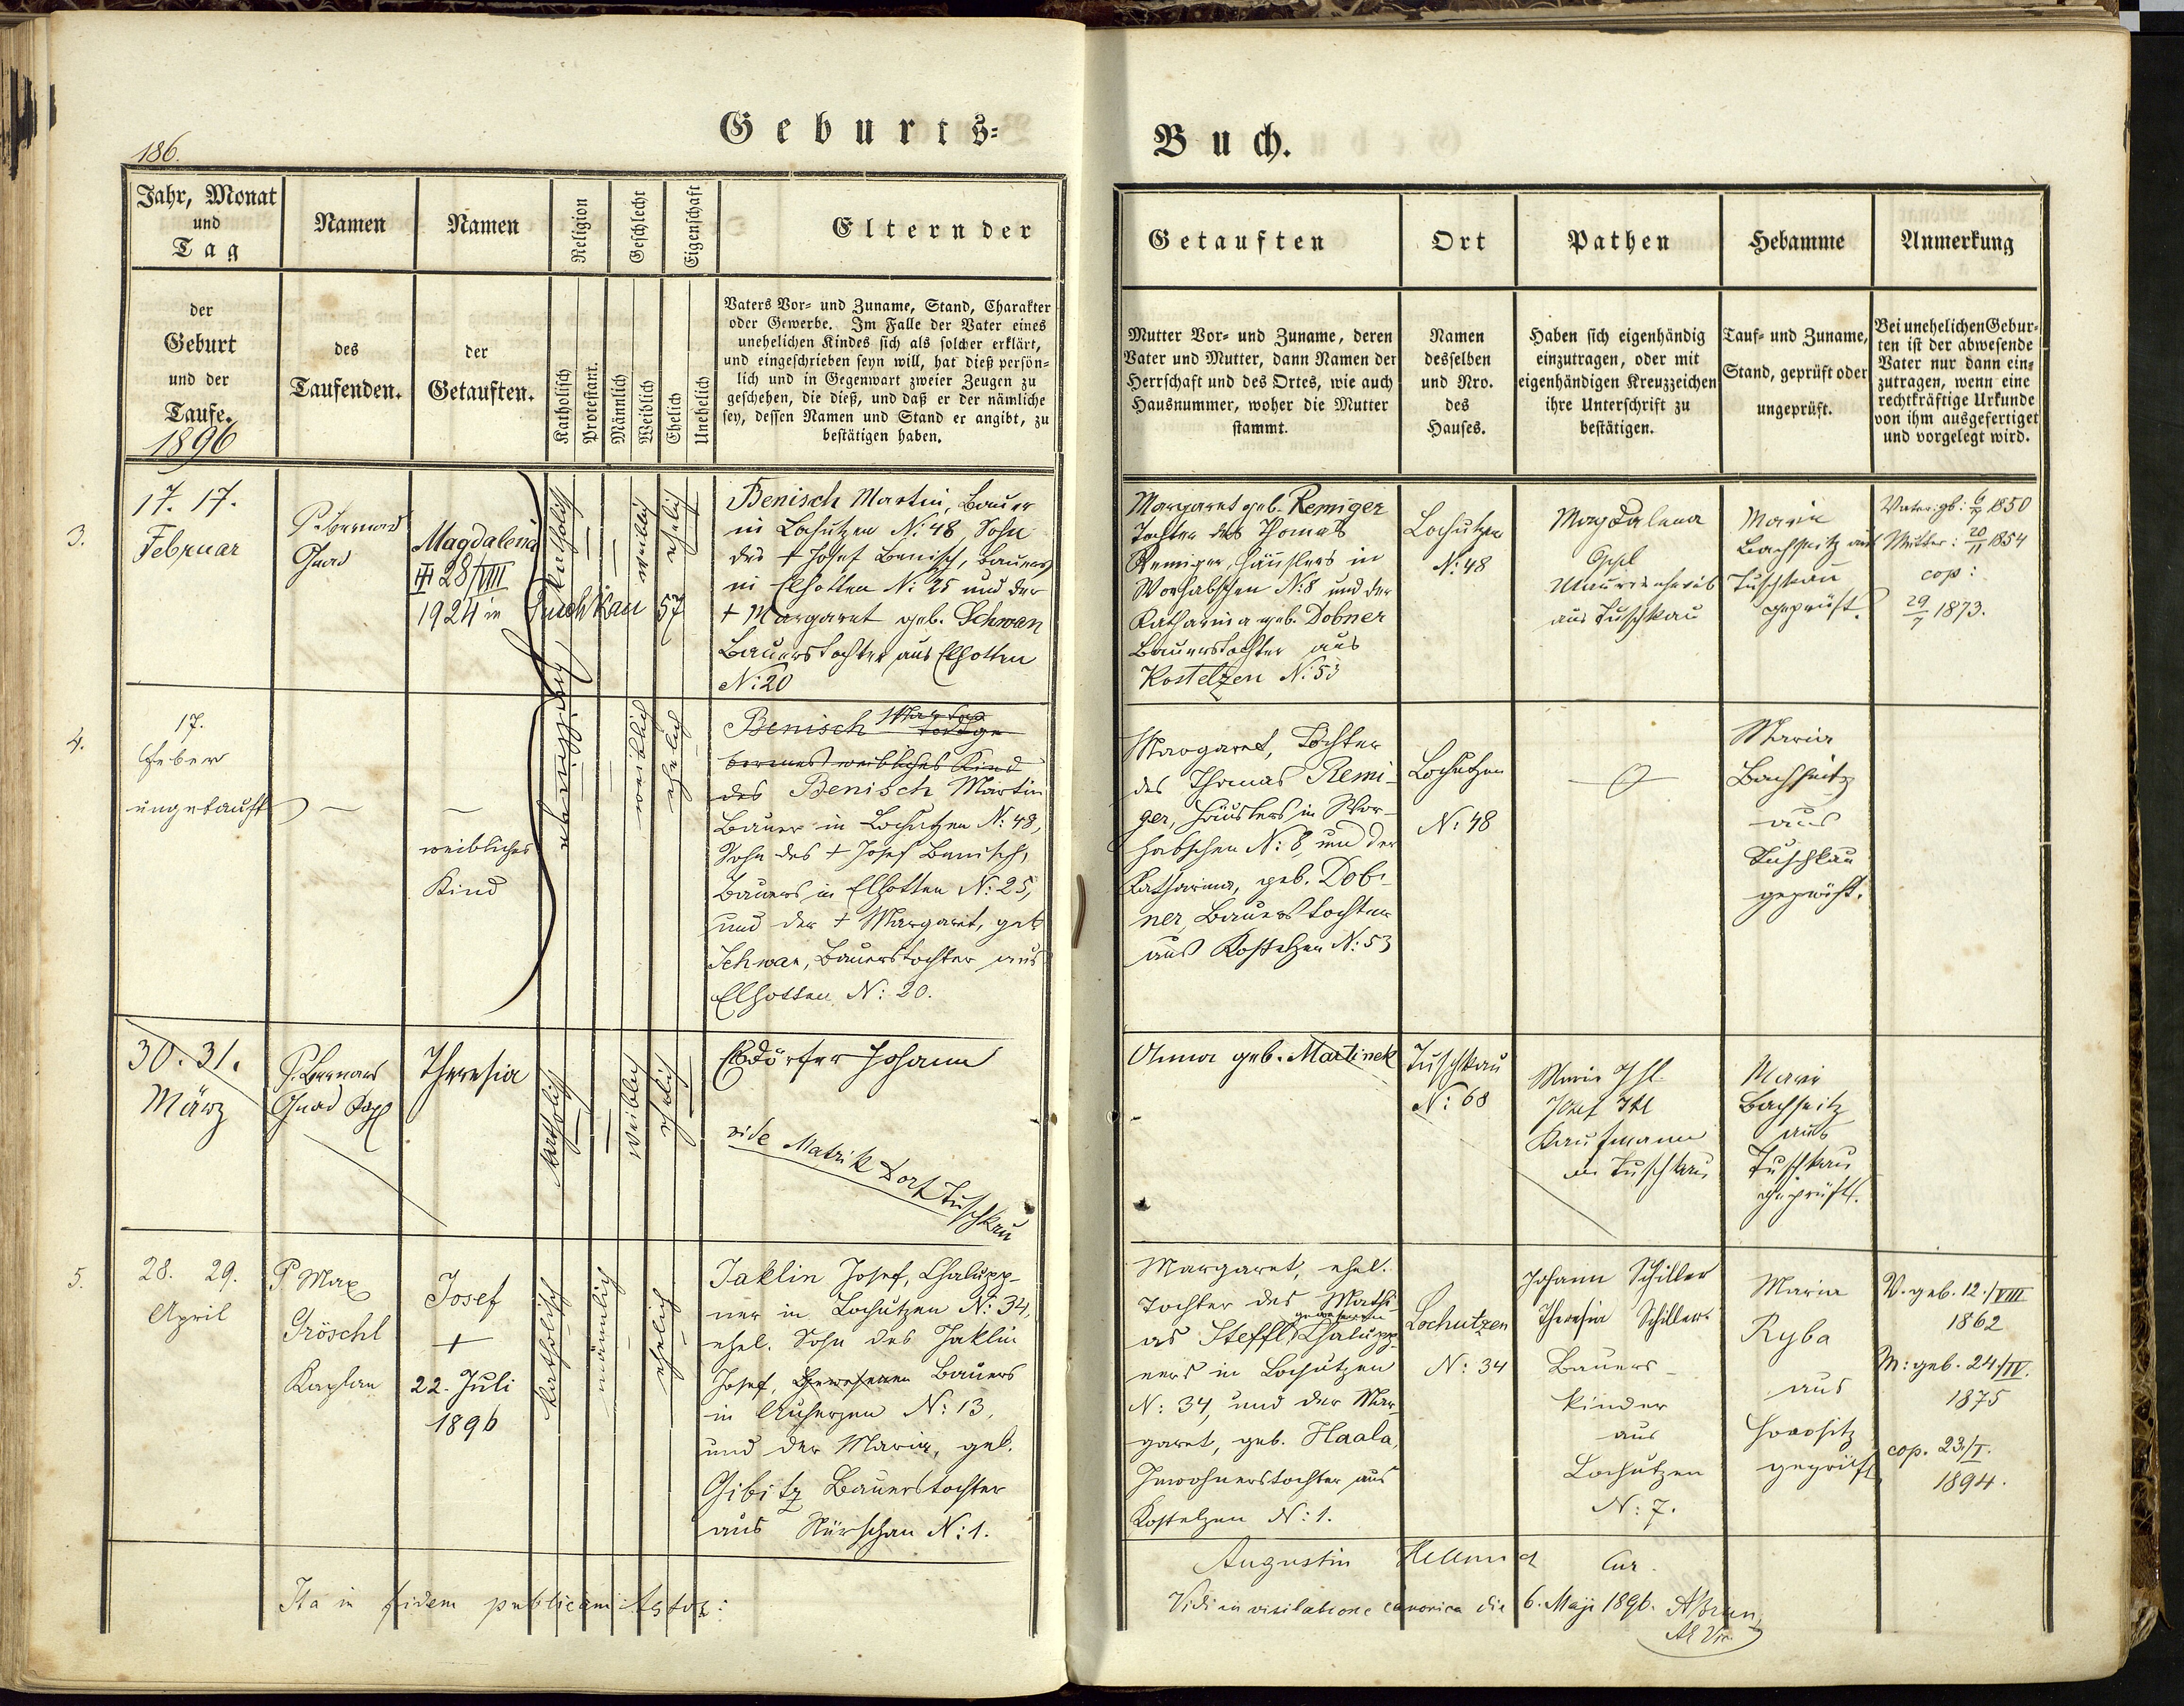 Geburts=
Buch.
186.
Jahr, Monat
und
Tag
Namen
Namen
Religion
Geschlecht
Eigenschaft
Eltern der
der
Geburt
und der
Taufe.
1896
des
Taufenden.
der
Getauften.
Katholisch
Protestant.
Männlich
Weiblich
Ehelich
Unehelich
Vaters Vor= und Zuname, Stand, Charakter
oder Gewerbe. Im Falle der Vater eines
unehelichen Kindes sich als solcher erklärt,
und eingeschrieben seyn will, hat dieß persön=
lich und in Gegenwart zweier Zeugen zu
geschehen, die dieß, und daß er der nämliche
sey, dessen Namen und Stand er angibt, zu
bestätigen haben.
Getauften
Ort
Pathen
Hebamme
Anmerkung
Mutter Vor= und Zuname, deren
Vater und Mutter, dann Namen der
Herrschaft und des Ortes, wie auch
Hausnummer, woher die Mutter
stammt.
Namen
desselben
und Nro.
des
Hauses.
Haben sich eigenhändig
einzutragen, oder mit
eigenhändigen Kreuzzeichen
ihre Unterschrift zu
bestätigen.
Tauf= und Zuname,
Stand, geprüft oder
ungeprüft.
Bei unehelichen Gebur=
ten ist der abwesende
Vater nur dann ein=
zutragen, wenn eine
rechtkräftige Urkunde
von ihm ausgefertiget
und vorgelegt wird.
3.
17. 17.
Februar
P. Bernard
Gnad
Magdalena
III 28/VIII
1924 in Tuschkau 57
katholisch
weiblich
ehelich
Benisch Martin, Bauer
in Lochutzen N: 48, Sohn
des + Josef Benisch, Bauers
in Elhotten N: 25 und der
+ Margaret geb. Schwan
Bauerstochter aus Elhotten
N: 20
Margaret geb. Remiger
Tochter des Thomas
Remiger, Häuslers in
Worhabschen N: 8 und der
Katharina geb. Dobner
Bauerstochter aus
Kostelzen N: 53
Lochutzen
N: 48
Magdalena
Oppl
aus Tuschkau
Maria
Bachheitz aus
Tuschkau
geprüft.
Vater gb: 6/7 1850
Mutter: 20/11 1854
cop:
29/7 1873.
4.
17.
Feber
ungetauft
weibliches
Kind
weiblich
ehelich
Benisch
borenes weibliches Kind
des Benisch Martin
Bauer in Lochutzen N: 48,
Sohn des + Josef Benisch,
Bauers in Elhotten N: 25,
und der + Margaret, geb
Schwan, Bauerstochter aus
Elhotten N: 20.
Margaret, Tochter
des Thomas Remi-
ger, Häuslers in Wor-
habschen N: 8, und der
Katharina, geb. Dob-
ner, Bauerstochter
aus Kostelzen N: 53
Lochutzen
N: 48
Maria
Bachheitz
aus
Tuschkau
geprüft.
30. 31.
März
P. Bernard
Gnad Kapl
Theresia
katholisch
weiblich
ehelich
Johann
vide Matrik Dorf Tuschkau
Anna geb. Martinek
Tuschkau
N: 68
Marie Ihl
Josef Ihl
Kaufmann
in Tuschkau
Marie
Bachheitz
aus
Tuschkau
geprüft.
5.
28. 29.
April
P. Max
Gröschl
Kaplan
Josef
+
22. Juli
1896
katholisch
männlich
ehelich
Jaklin Josef, Chalupp-
ner in Lochutzen N: 34,
ehel. Sohn des Jaklin
Josef, gewesenen Bauers
in Auherzen N: 13,
und der Maria, geb.
Gibitz Bauerstochter
aus Nürschan N: 1.
Margaret, ehel.
Tochter des Mathi-
gewesenen
as Steffl Chalupp-
ners in Lochutzen
N: 34, und der Mar-
garet, geb. Haala,
Inwohnerstochter aus
Kostelzen N: 1.
Lochutzen
N: 34
Johann Schiller
Theresia Schiller
Bauers-
kinder
aus
Lochutzen
N: 7.
Maria
Ryba
aus
Horositz
geprüft
V. geb. 12./VIII
1862
M: geb. 24/IV.
1875
cop. 23/I.
1894.
Ita in fidem publicam testor:
Augustin Hellmich Cur.
Vidi in visitatione canonica die 6. Maji 1896.